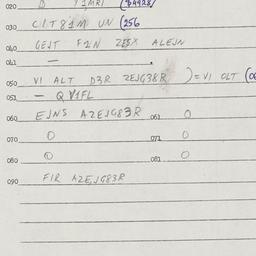 020
030 UN (256
040 GEIT F2N ALEJN
041 —
050 VI ALT D3R ZEJG38R ) = VI OLT
051 — QV1FL
060 EJNS AZEJG83R 061 O
070 O 071 O
080 O 081 O
090 FIR AZEJG83R